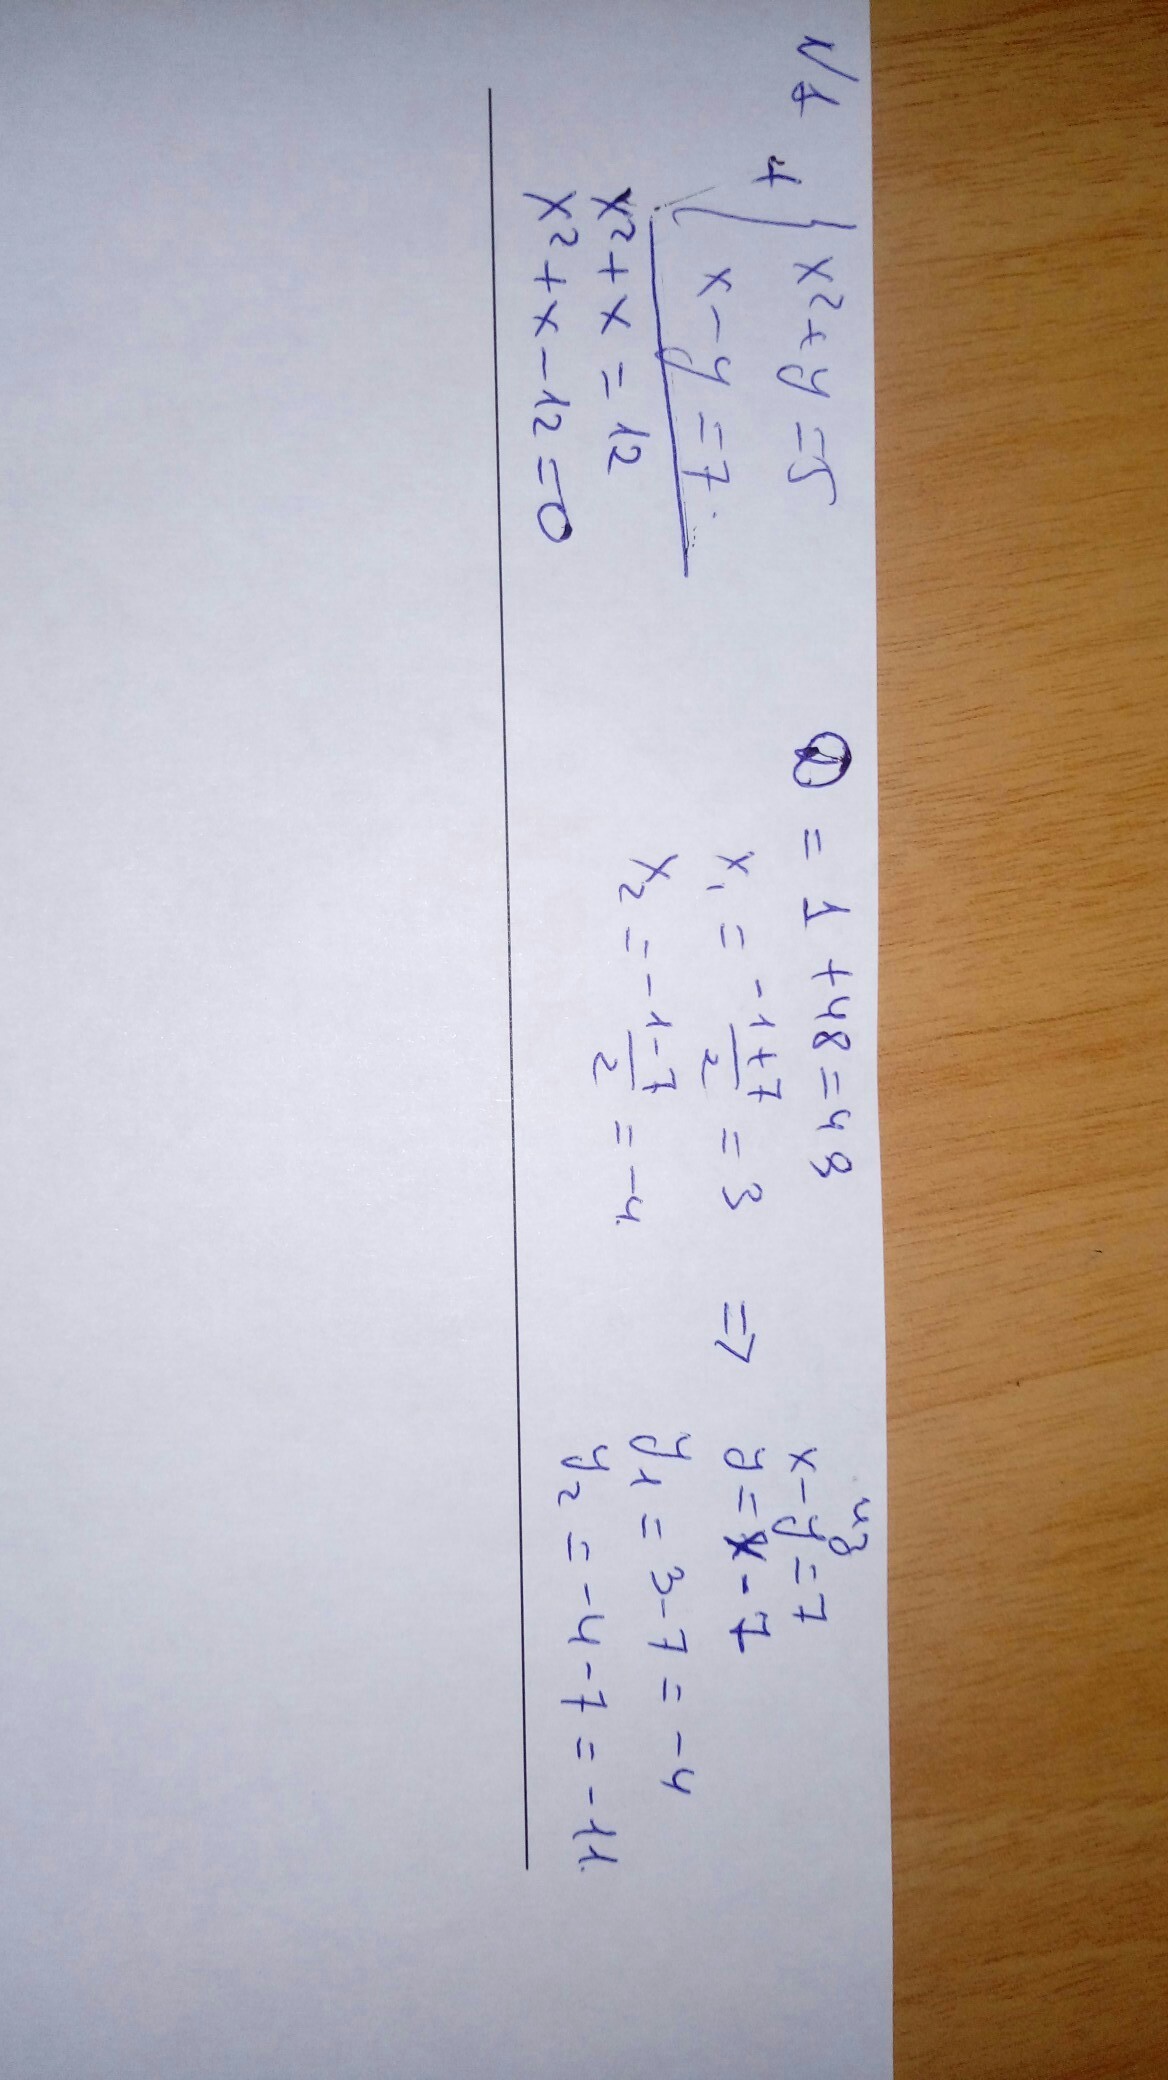 N1
+ { x² + y = 5
x - y = 7.
x² + x = 12
x² + x - 12 = 0
D = 1 + 48 = 49
x₁ = (-1 + 7)/2 = 3
x₂ = (-1 - 7)/2 = -4.
=>
из
x - y = 7
y = x - 7
y₁ = 3 - 7 = -4
y₂ = -4 - 7 = -11.